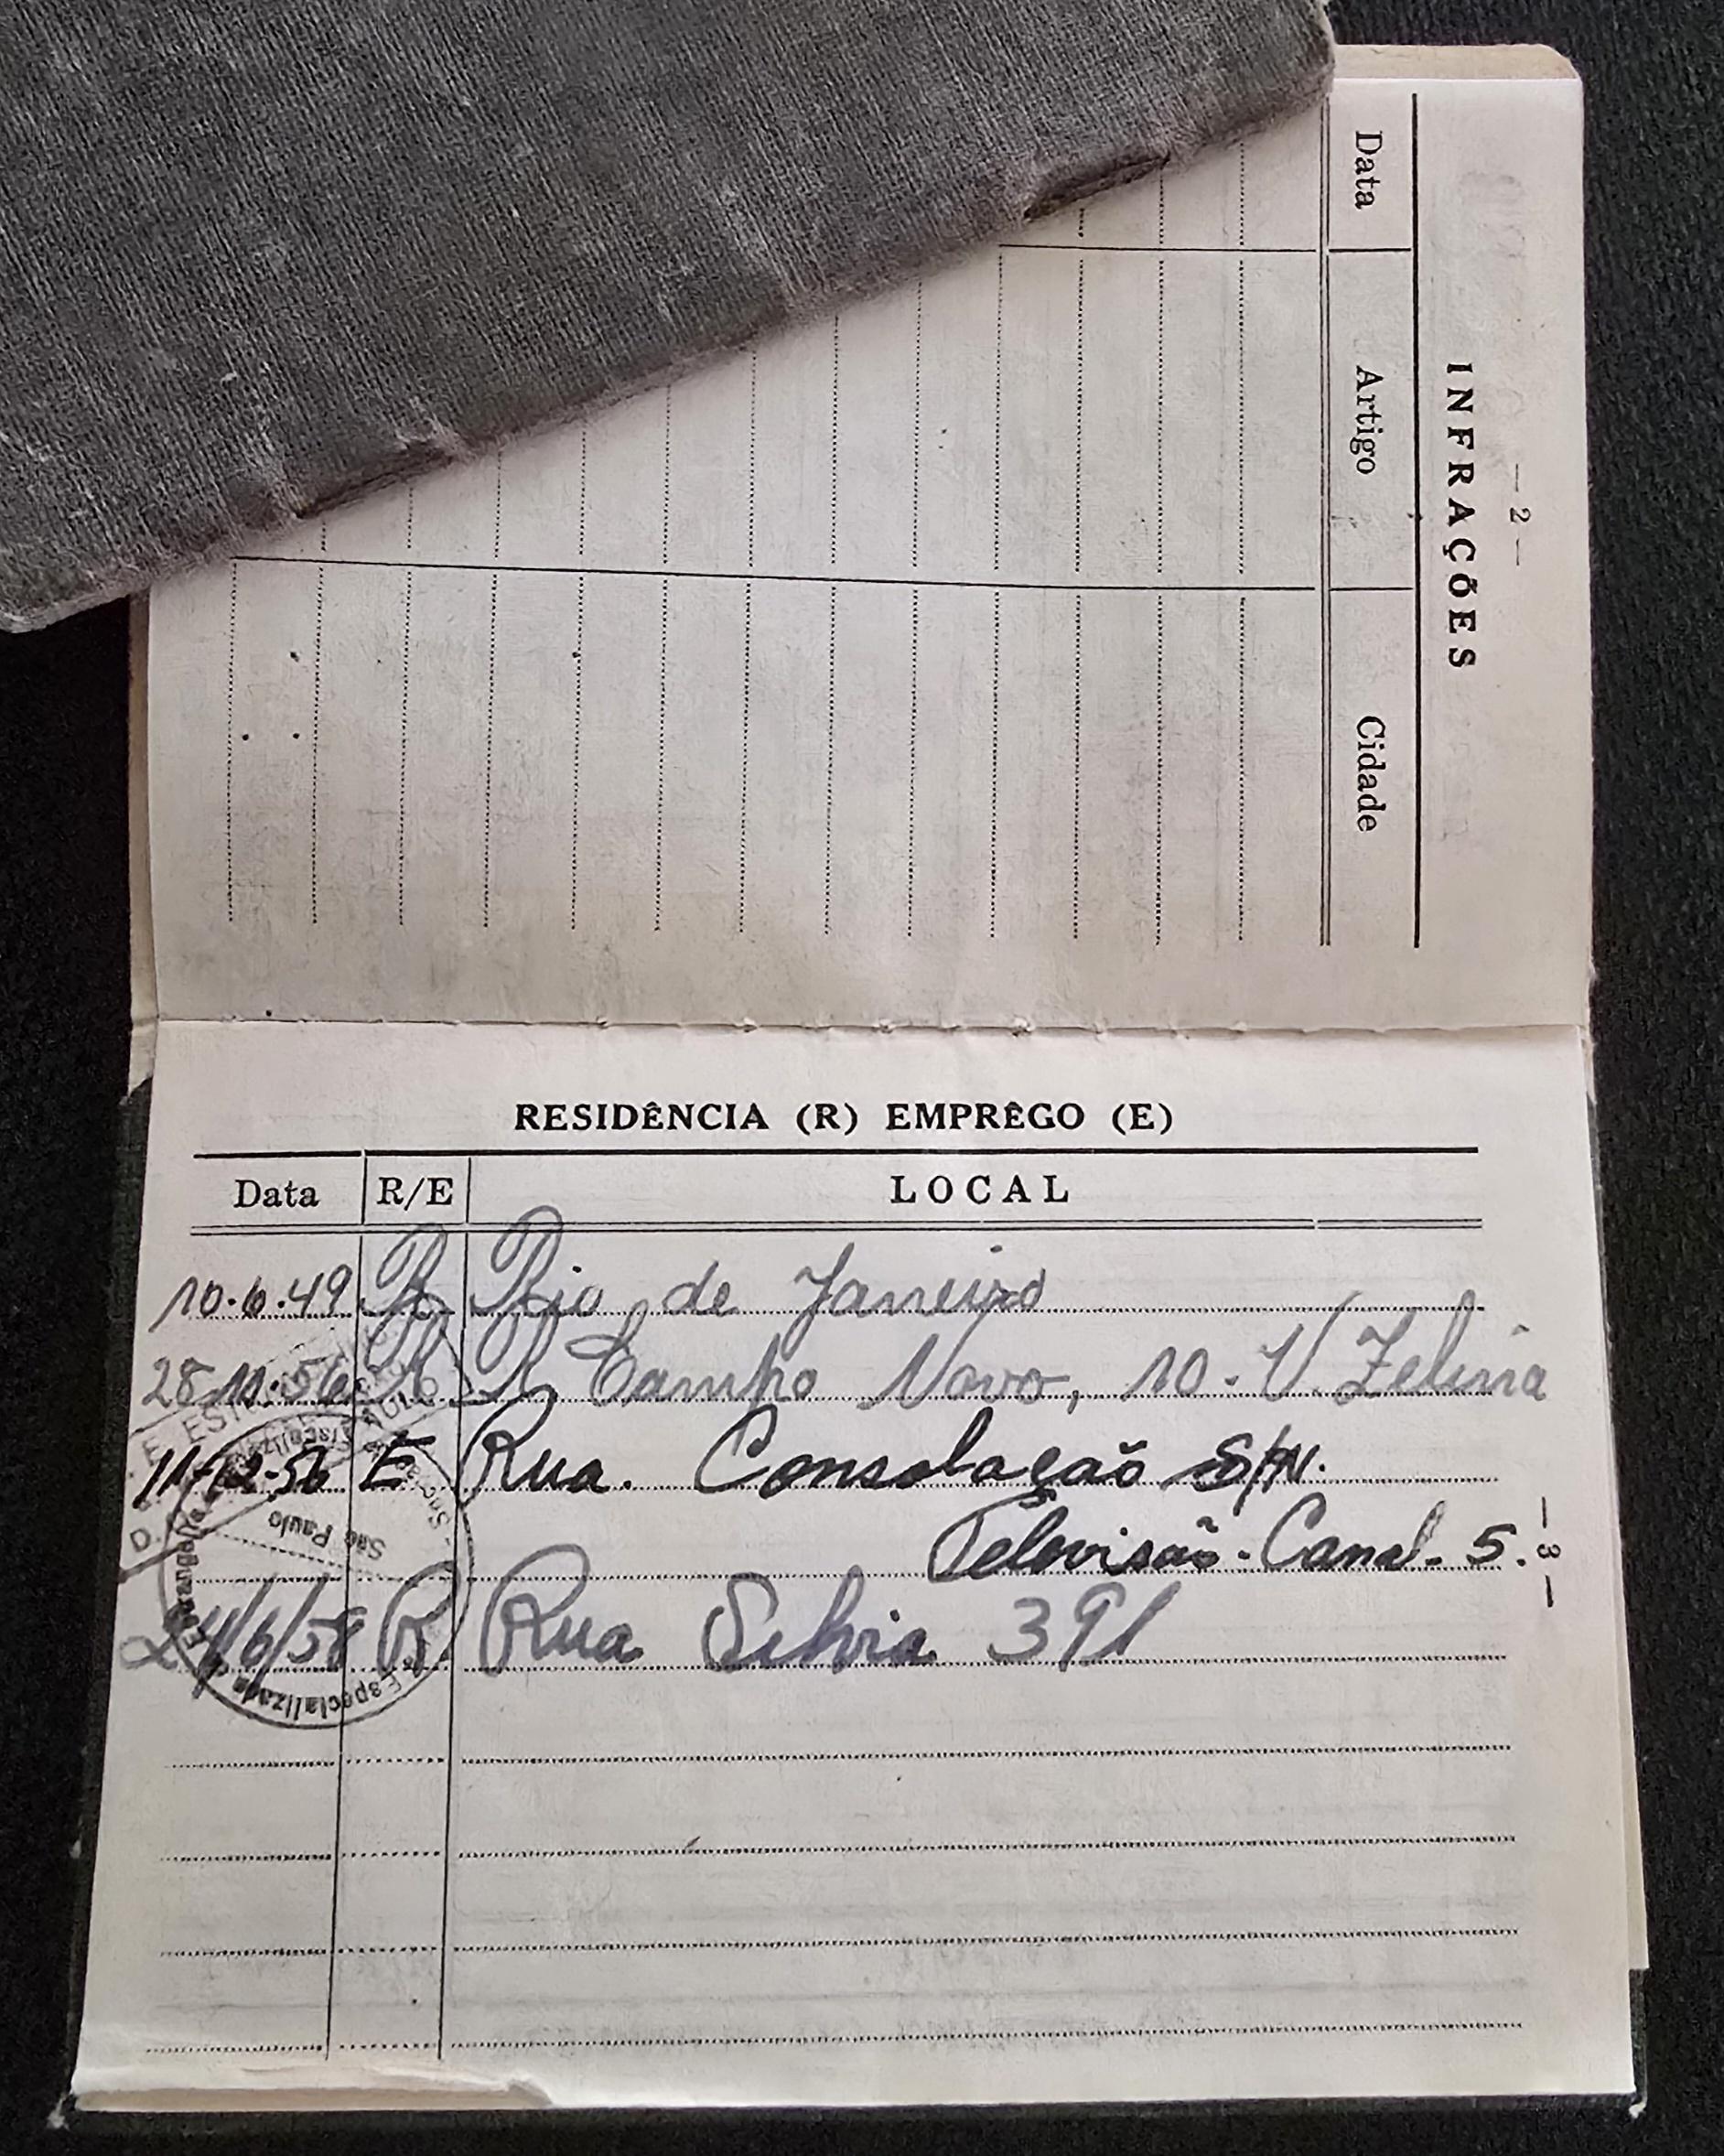 — 2 —
INFRAÇÕES
Data Artigo Cidade
RESIDÊNCIA (R) EMPRÊGO (E)
Data R/E LOCAL
10.6.49 R Rio de Janeiro
28.11.56 R R Campo Novo, 10 - V. Zelina
11-12-56 E Rua. Consolação S/N.
Televisão - Canal - 5.
24/6/58 R Rua Silvia 391
— 3 —
São Paulo
Especializada